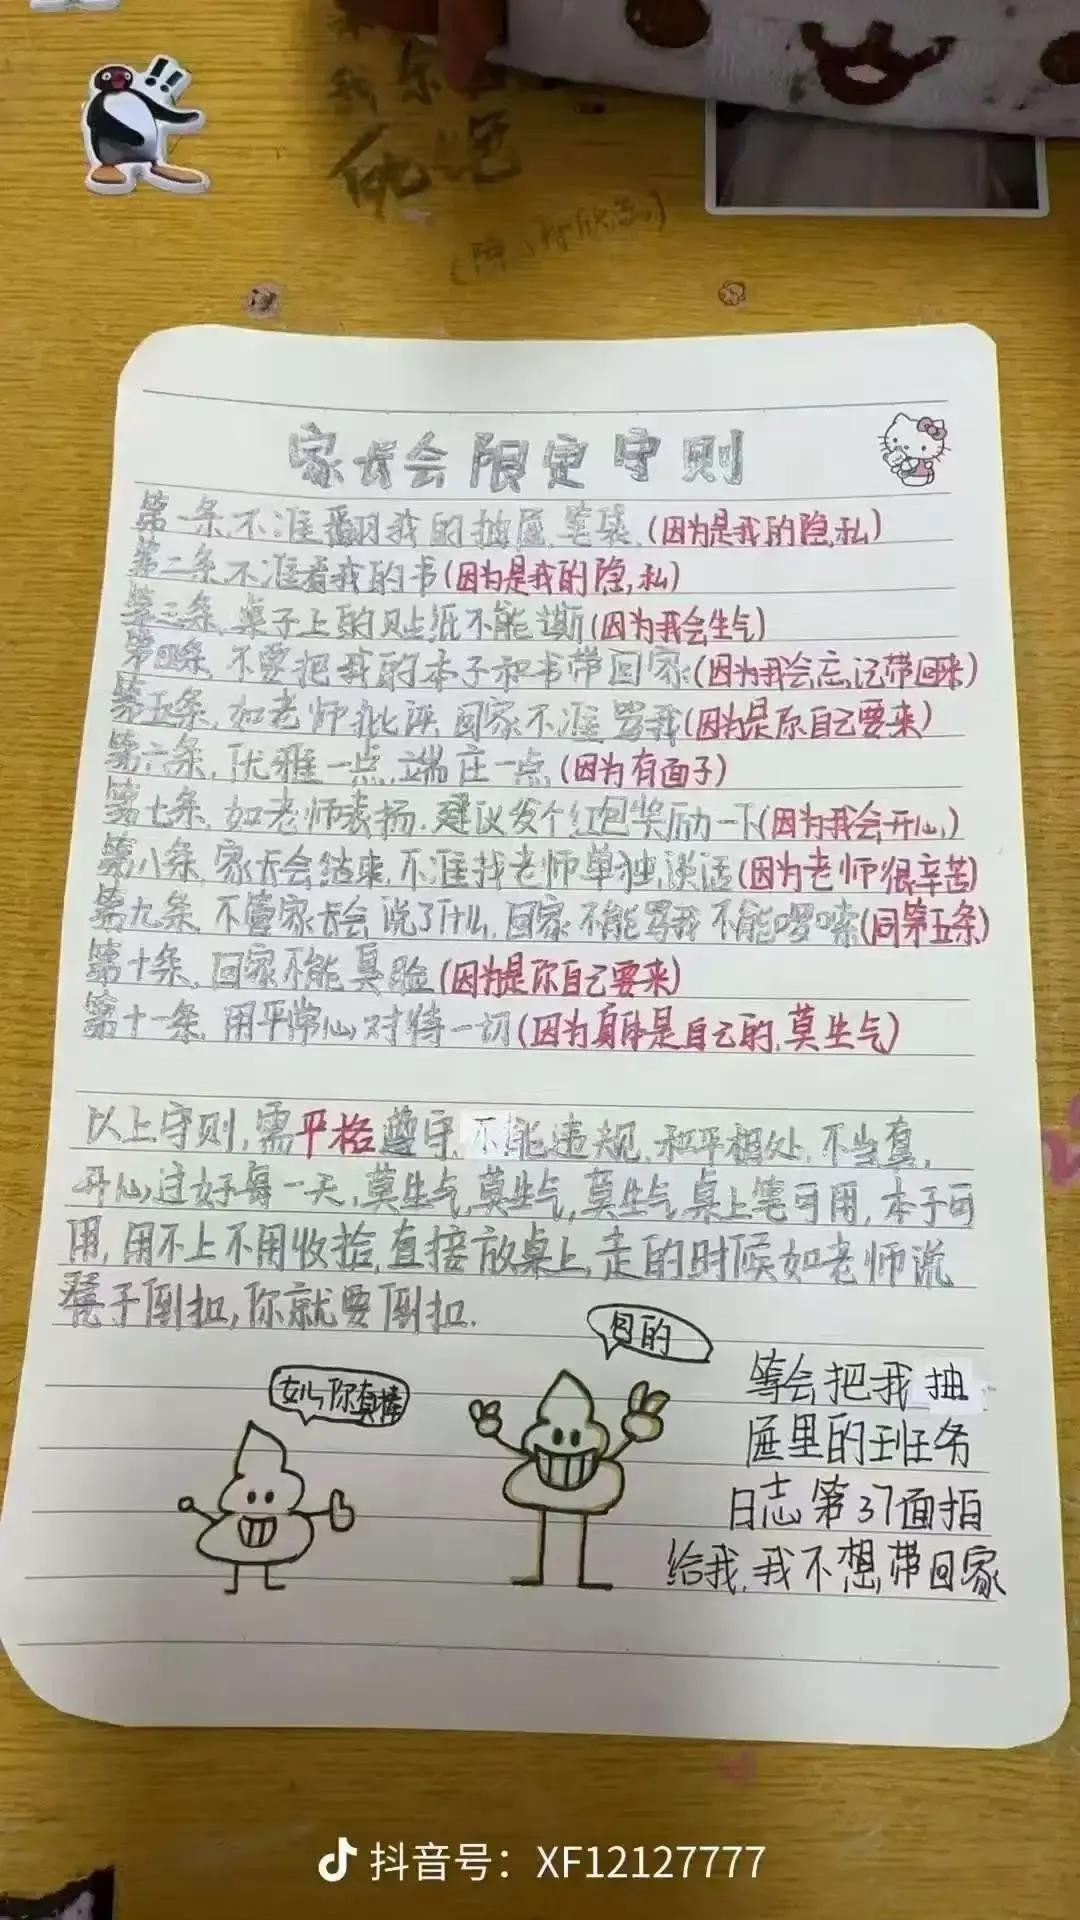 死绝
家长会限定守则
第一条,不准翻我的抽屉,笔袋,(因为是我的隐私)
第二条,不准看我的书(因为是我的隐私)
第三条,桌子上的贴纸不能撕(因为我会生气)
第四条,不要把我的本子和书带回家(因为我会忘记带回来)
第五条,如老师批评,回家不准骂我(因为是你自己要来)
第六条,优雅一点,端庄一点(因为有面子)
第七条,如老师表扬,建议发个红包奖励一下(因为我会开心)
第八条,家长会结束,不准找老师单独谈话(因为老师很辛苦)
第九条,不管家长会说了什么,回家不能骂我不能啰嗦(同第五条)
第十条,回家不能臭脸(因为是你自己要来)
第十一条,用平常心对待一切(因为身体是自己的,莫生气)
以上守则,需严格遵守,不能违规,和平相处,不当真,
开心过好每一天,莫生气,莫生气,莫生气,桌上笔可用,本子可
用,用不上不用收拾,直接放桌上,走的时候如老师说
凳子倒扣,你就要倒扣.
女儿你真棒
目的
等会把我抽
屉里的班务
日志第37面拍
给我,我不想带回家
抖音号：XF12127777